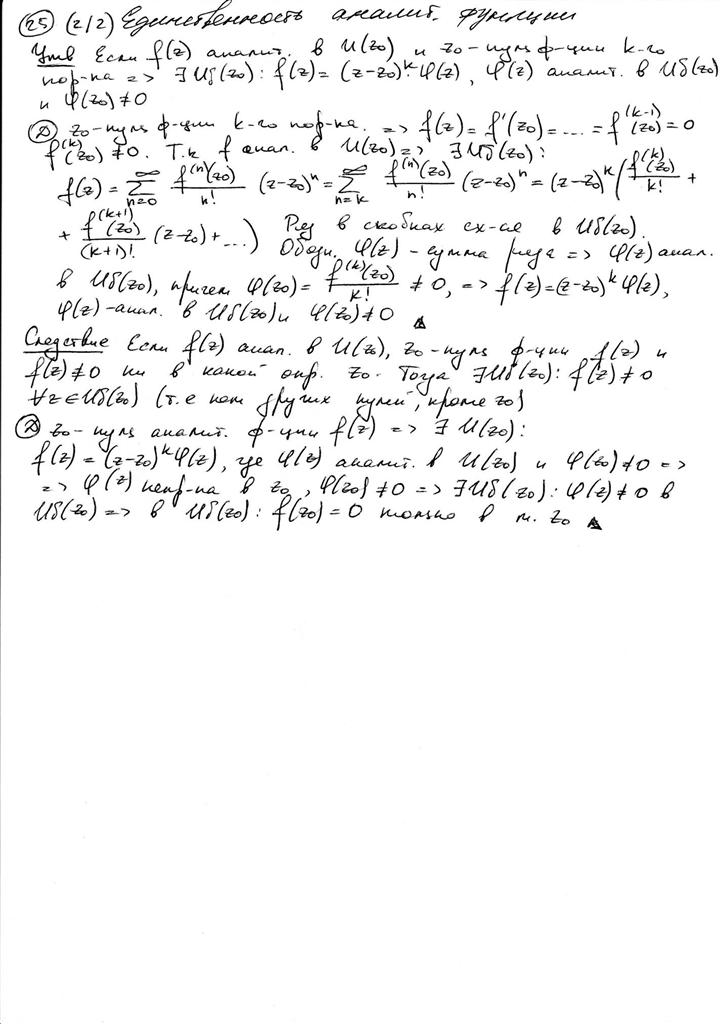 25 (2/2) Единственность аналит. функции
Утв Если f(z) аналит. в U(z₀) и z₀ - нуль ф-ции k-го
пор-ка => ∃ Uδ(z₀) : f(z) = (z-z₀)ᵏ·φ(z), φ(z) аналит. в Uδ(z₀)
и φ(z₀) ≠ 0
Д z₀ - нуль ф-ции k-го пор-ка. => f(z) = f'(z₀) = .... = f⁽ᵏ⁻¹⁾(z₀) = 0
f⁽ᵏ⁾(z₀) ≠ 0. Т.к f анал. в U(z₀) => ∃ Uδ(z₀) :
f(z) = ∑_{n=0}^{∞} f⁽ⁿ⁾(z₀)/n! (z-z₀)ⁿ = ∑_{n=k}^{∞} f⁽ⁿ⁾(z₀)/n! (z-z₀)ⁿ = (z-z₀)ᵏ (f⁽ᵏ⁾(z₀)/k! +
+ f⁽ᵏ⁺¹⁾(z₀)/(k+1)! (z-z₀) + ...) Ряд в скобках сх-ся в Uδ(z₀).
Обозн. φ(z) - сумма ряда => φ(z) анал.
в Uδ(z₀), причем φ(z₀) = f⁽ᵏ⁾(z₀)/k! ≠ 0, => f(z) = (z-z₀)ᵏ φ(z),
φ(z) - анал. в Uδ(z₀) и φ(z₀) ≠ 0 ▲
Следствие Если f(z) анал. в U(z₀), z₀ - нуль ф-ции f(z) и
f(z) ≠ 0 ни в какой окр. z₀. Тогда ∃ Uδ(z₀) : f(z) ≠ 0
∀z ∈ Uδ(z₀) (т.е нет других нулей, кроме z₀)
Д z₀ - нуль аналит. ф-ции f(z) => ∃ U(z₀) :
f(z) = (z-z₀)ᵏ φ(z), где φ(z) аналит. в U(z₀) и φ(z₀) ≠ 0 =>
=> φ(z) непр-на в z₀, φ(z₀) ≠ 0 => ∃ Uδ(z₀) : φ(z) ≠ 0 в
Uδ(z₀) => в Uδ(z₀) : f(z₀) = 0 только в т. z₀ ▲